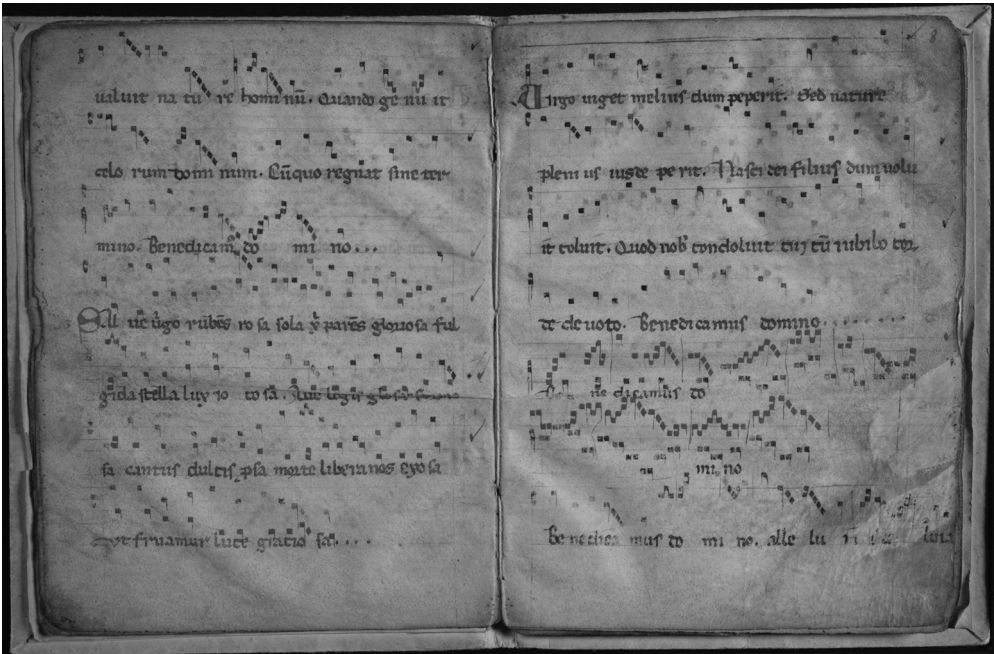 ualuit na tu re homi nū. Quando ge nu it
celo rum domi num. Cū quo regnat sine ter
mino. Benedicam9 do mi no...
ue ūgo rubēs ro sa sola parēs gloriosa ful
gida stella lux io co sā.
sa cantus dulcis psa morte libera nos exo sa
fruamur luce gratio sa...
8
Uirgo uiget melius dum peperit. Sed nature
pleni us ius de pe rit. Nasci dei filius dum uolu
it toluit. Quod nob condoluit cui cū iubilo cor
de deuoto. Benedicamus domino.......
ne dicamus do
mi no
Be nedica mus do mi no. alle lu